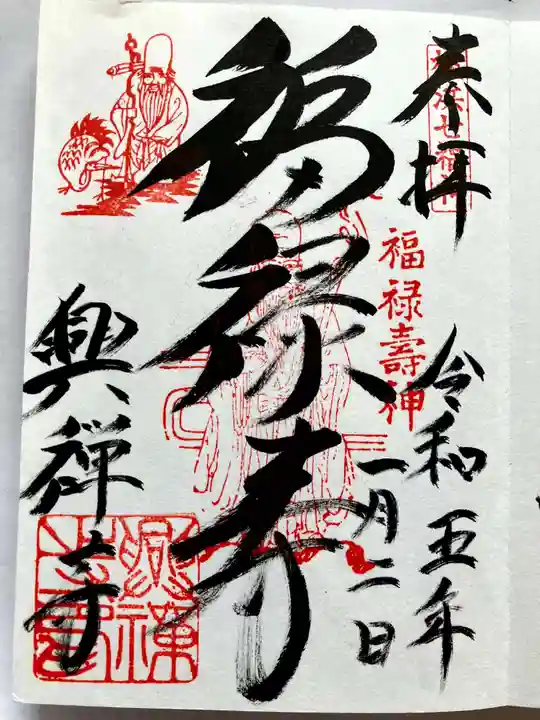 奉拝
令和五年
一月二日
福禄壽神
福禄寿
興禅寺